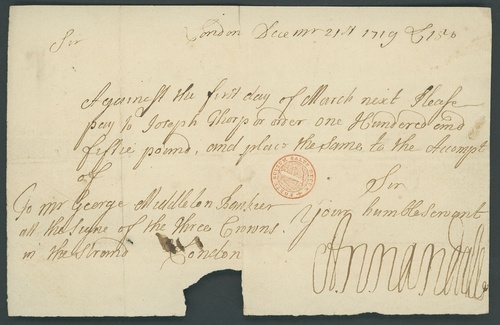 Sir London Decemr 21st 1719 £150
Againest the first day of March next Please
pay to Joseph Thorp or order one Hundered and
fiftie pound, and place the same to the Accompt
of Sir
To Mr George Middleton Banker your humble servant
att the Signe of the Three Crowns Annandale
in the Strand London